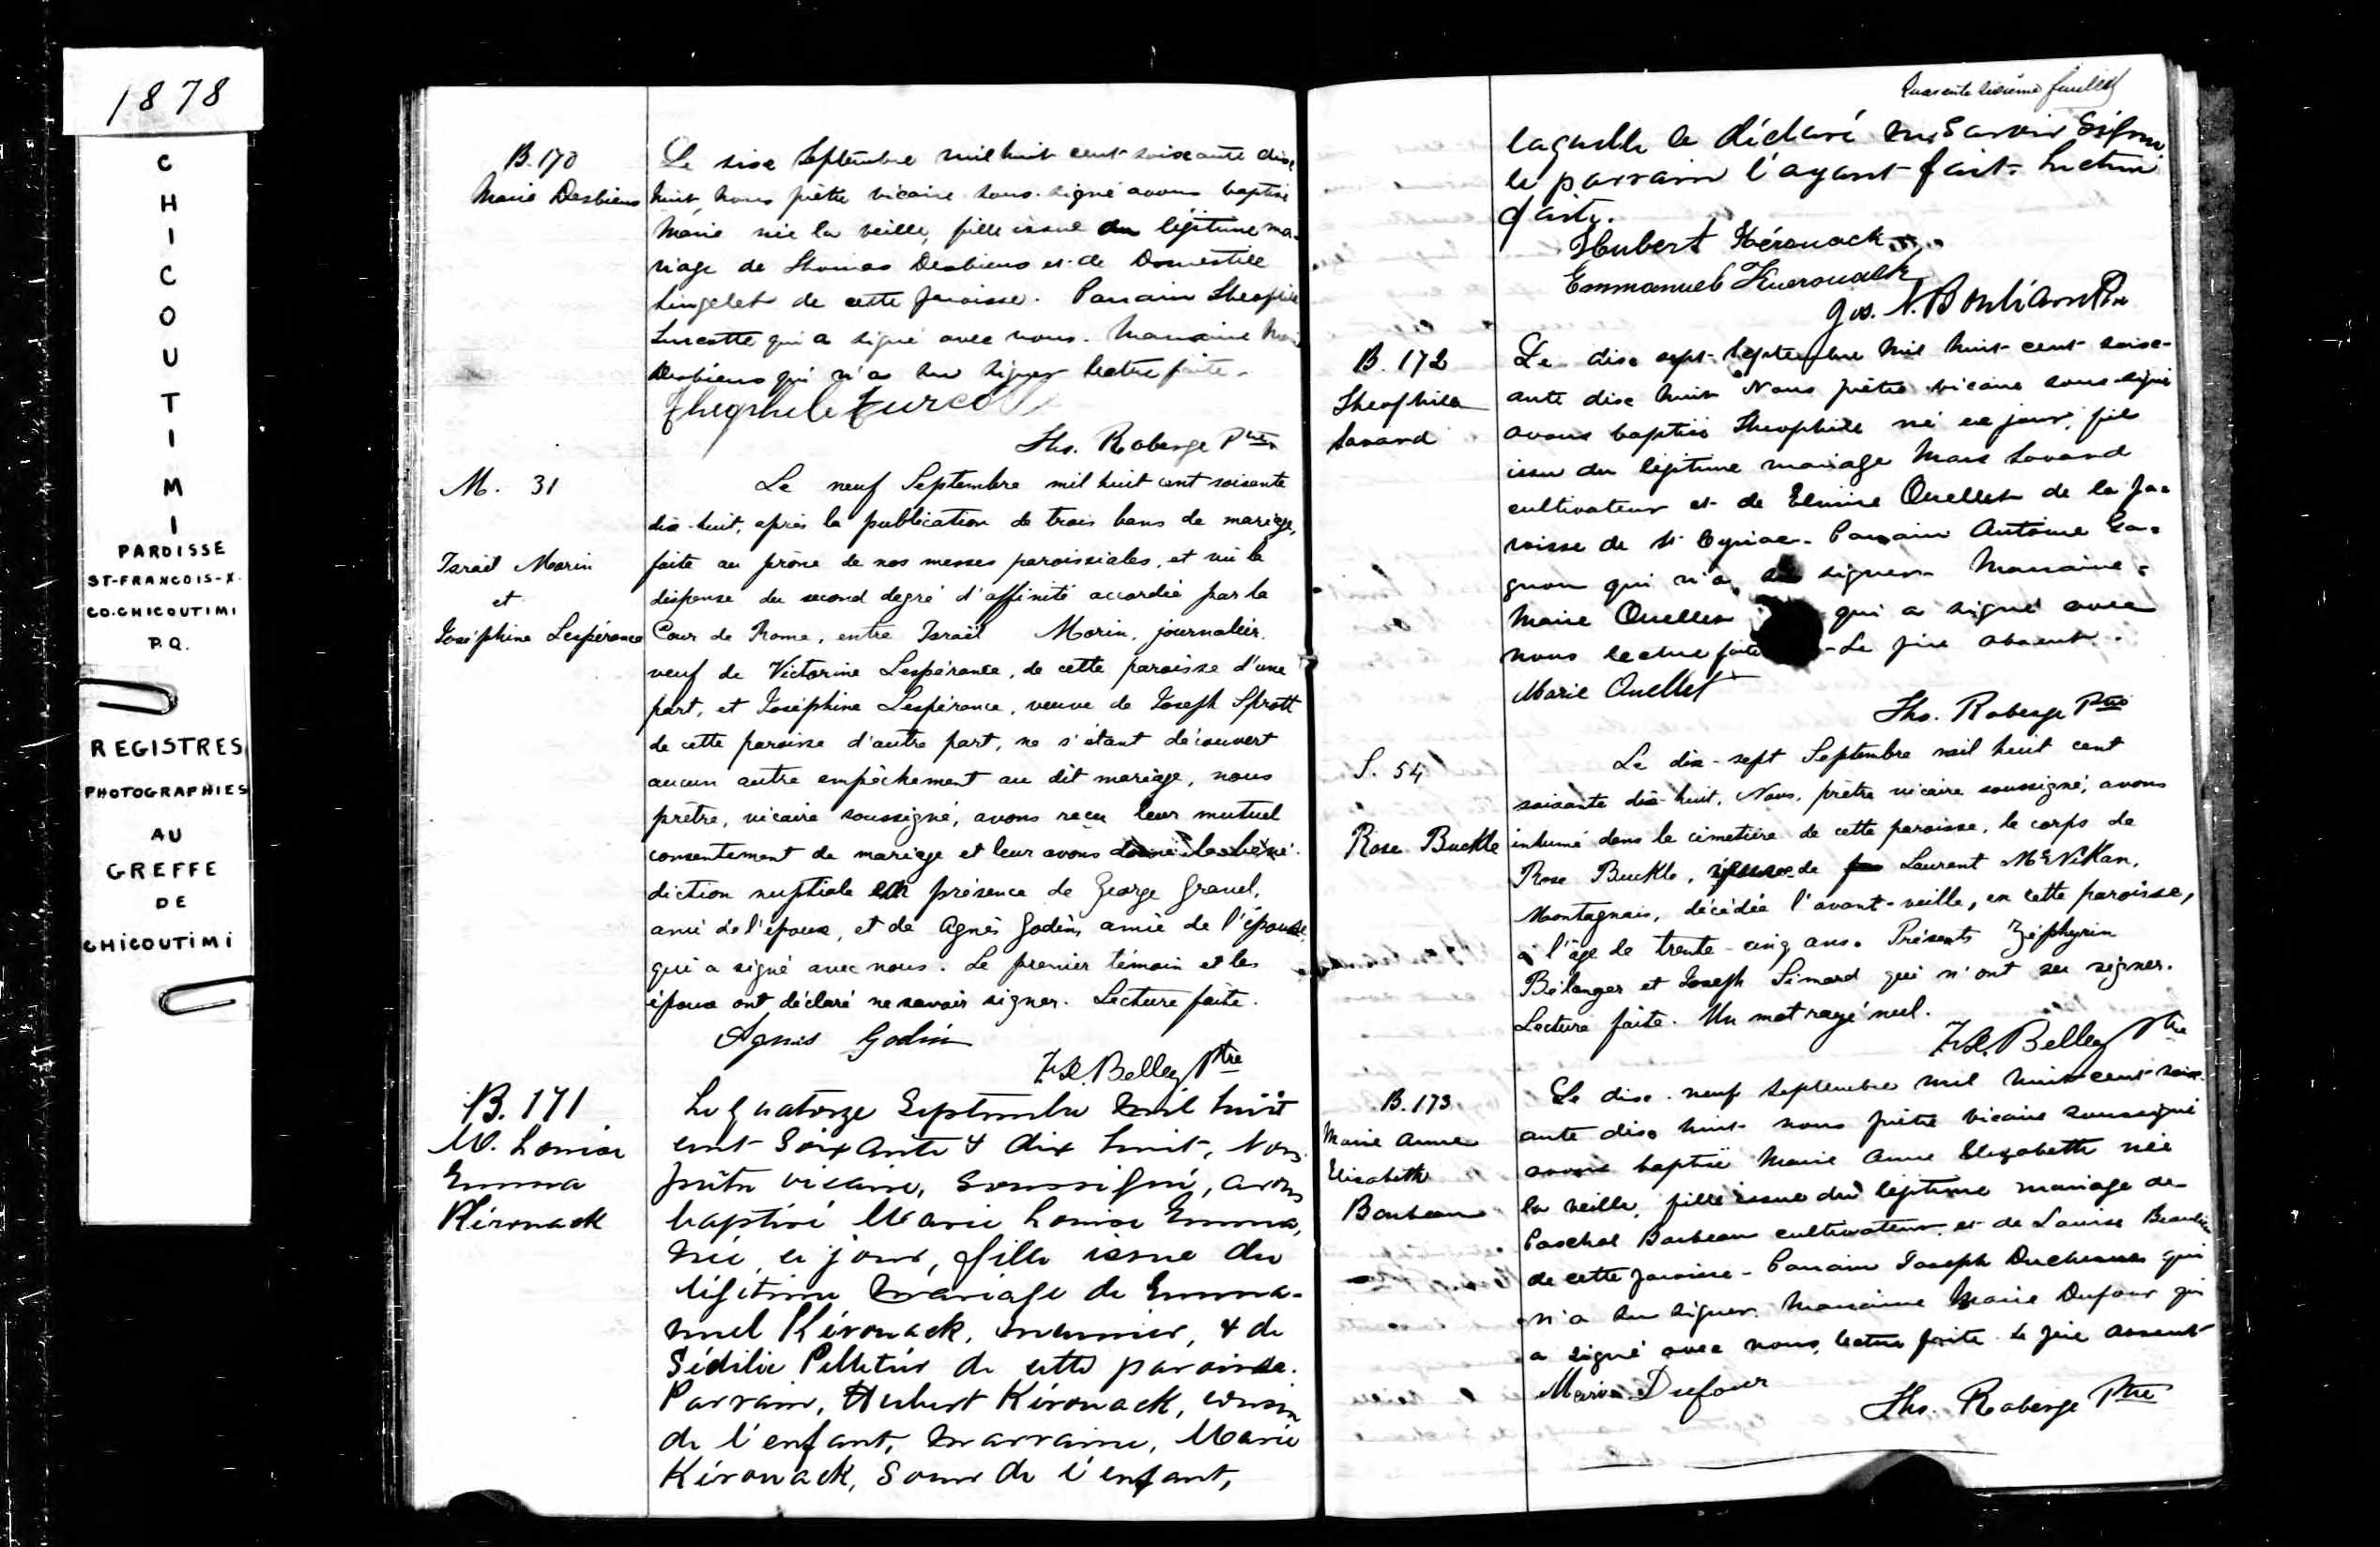 1878
C
H
I
C
O
U
T
I
M
I
PAROISSE
ST-FRANCOIS-X.
CO.CHICOUTIMI
P.Q.
REGISTRES
PHOTOGRAPHIES
AU
GREFFE
DE
CHICOUTIMI
B. 170
Marie Desbiens
Le six Septembre mil huit cent soixante dix
huit, nous prêtre vicaire sous-signé avons baptisé
Marie née la veille, fille issue du légitime ma-
riage de Thomas Desbiens et de Domestile
Lingelet de cette paroisse. Parrain Theophile
Turcotte qui a signé avec nous. Marraine
Desbiens qui n'a su signer lecture faite.
Theophile Turcott
Ths. Roberge Ptre
M. 31
Israël Morin
et
Joséphine Lespérance
Le neuf Septembre mil huit cent soixante
dix-huit, après la publication de trois bans de mariage,
faite au prône de nos messes paroissiales, et vu la
dispense du second degré d'affinité accordée par la
Cour de Rome, entre Israël Morin, journalier,
veuf de Victorine Lespérance, de cette paroisse d'une
part, et Joséphine Lespérance, veuve de Joseph Sprott
de cette paroisse d'autre part, ne s'étant découvert
aucun autre empêchement au dit mariage, nous
prêtre, vicaire soussigné, avons reçu leur mutuel
consentement de mariage et leur avons donné la béné-
diction nuptiale en présence de George Gravel,
ami de l'époux, et de Agnès Godin, amie de l'épouse,
qui a signé avec nous. Le premier témoin et les
époux ont déclaré ne savoir signer. Lecture faite.
Agnes Godin
F.X. Belley Ptre
B. 171
M. Louise
Emma
Kérouack
Le quatorze Septembre mil huit
cent soixante & dix huit, Nous
prêtre vicaire, soussigné, avons
baptisé Marie Louise Emma,
née ce jour, fille issue du
légitime mariage de Emma-
nuel Kérouack, menuisier, & de
Sédilie Pelletier de cette paroisse.
Parrain, Hubert Kérouack, cousin
de l'enfant, marraine, Marie
Kérouack, soeur de l'enfant,
Quarante sixième feuillet
laquelle a déclaré ne savoir signer
le parrain l'ayant fait. Lecture
faite.
Hubert Kérouack
Emmanuel Kuerouack
Jos. N. Boulianne Ptre
B. 172
Theophile
Savard
Le dix sept Septembre mil huit cent soix-
ante dix huit Nous prêtre vicaire sous-signé
avons baptisé Theophile né ce jour, fils
issu du légitime mariage Marc Savard
cultivateur et de Elmire Ouellet de la pa-
roisse de St Cyriac. Parrain Antoine Ga-
gnon qui n'a su signer Marraine
Marie Ouellet qui a signé avec
nous lecture faite - Le père absent.
Marie Ouellet
Ths. Roberge Ptre
S. 54
Rose Buckle
Le dix-sept Septembre mil huit cent
soixante dix-huit, Nous, prêtre vicaire soussigné, avons
inhumé dans le cimetière de cette paroisse, le corps de
Rose Buckle, épouse de feu Laurent McNikan,
Montagnais, décédée l'avant-veille, en cette paroisse,
à l'âge de trente-cinq ans. Présents Zéphyrin
Bélanger et Joseph Simard qui n'ont su signer.
Lecture faite. Un mot rayé nul.
F.X. Belley Ptre
B. 173
Marie Anne
Elisabeth
Barbeau
Le dix-neuf Septembre mil huit cent soix-
ante dix huit nous prêtre vicaire soussigné
avons baptisé Marie Anne Elizabeth née
la veille, fille issue du légitime mariage de
Paschal Barbeau cultivateur et de Louise Beaulieu
de cette paroisse - Parrain Joseph Duchesne qui
n'a su signer. Marraine Marie Dufour qui
a signé avec nous, lecture faite le père absent
Marie Dufour
Ths. Roberge Ptre